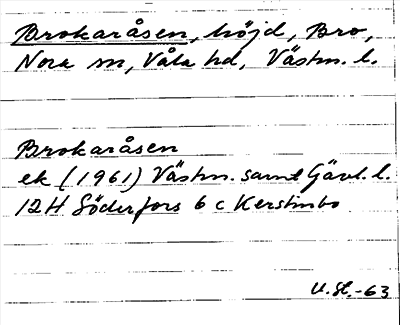 Brokaråsen, höjd, Bro,
Nora sn, Våla hd, Västm. l.
Brokaråsen
ek (1961) Västm. samt Gävl. l.
12H Söderfors 6 c Kerstinbo
U.St.-63